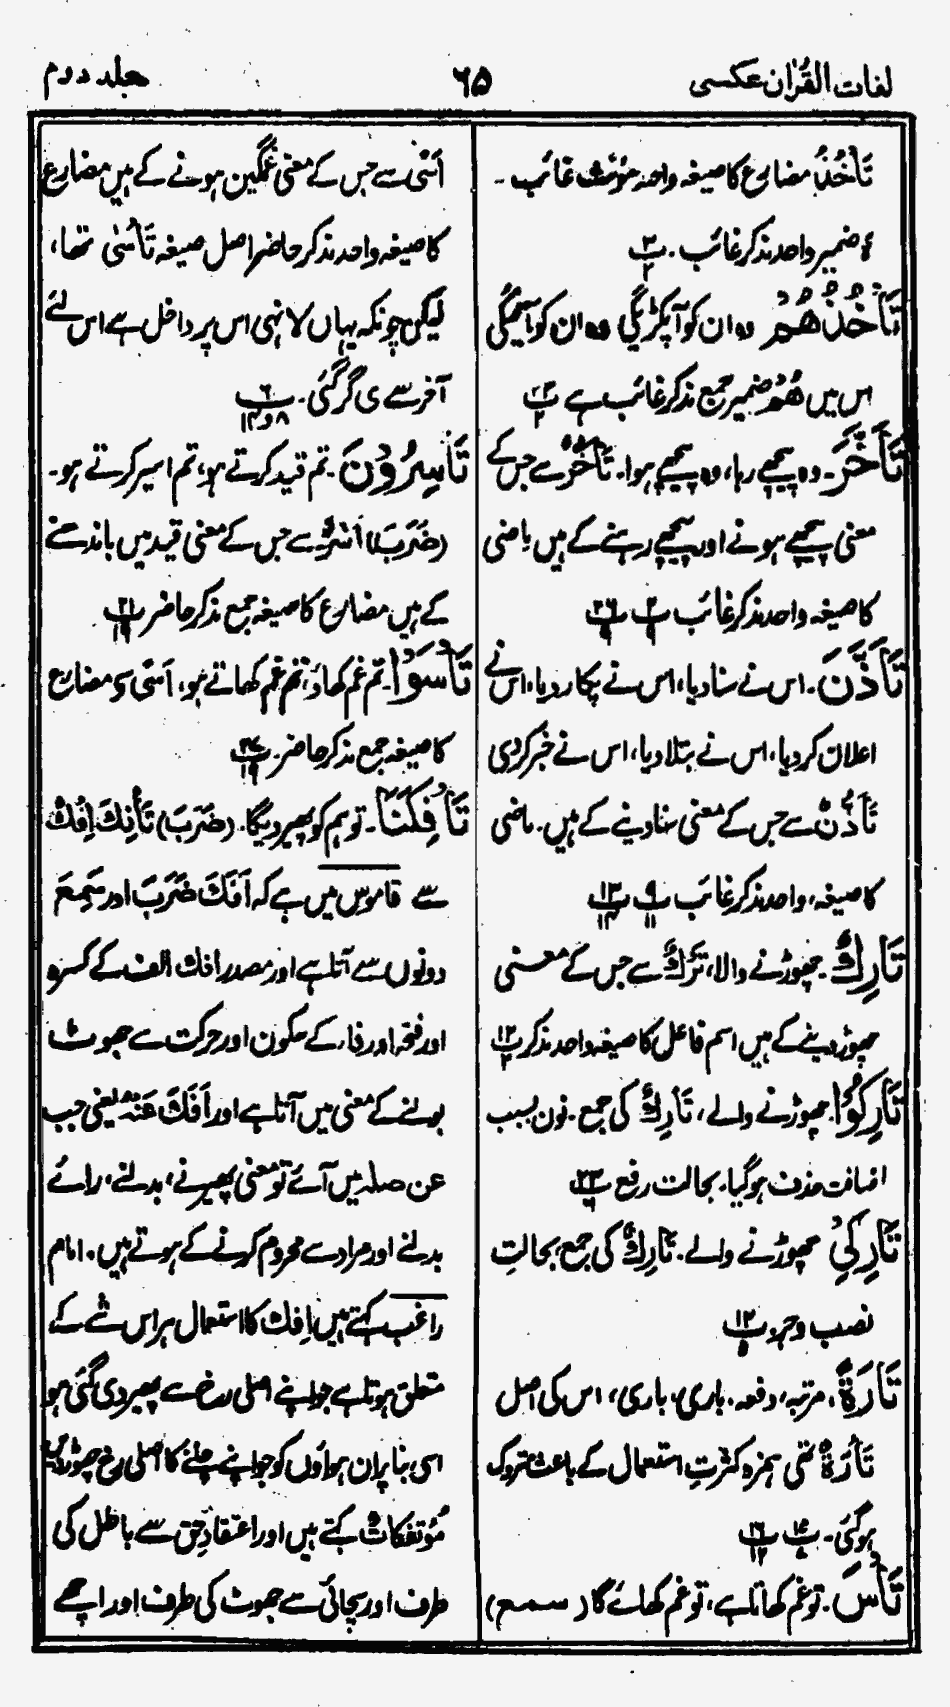 لغات القرآن عکسی
۶۵
جلد دوم
تَأْخُذُ مضارع کا صیغہ واحد مؤنث غائب -
ہٗ ضمیر واحد مذکر غائب - پ
تَأْخُذُهُمْ وہ ان کو آپکڑیگی وہ ان کو آلیگی
اس میں هُمْ ضمیر جمع مذکر غائب ہے پ
تَأَخَّرَ - وہ پیچھے رہا، وہ پیچھے ہوا - تَأَخُّرٌ سے جس کے
معنی پیچھے ہونے اور پیچھے رہنے کے ہیں ماضی
کا صیغہ واحد مذکر غائب پ پ
تَأَذَّنَ - اس نے سنا دیا، اس نے پکار دیا، اس نے
اعلان کر دیا، اس نے بتلا دیا، اس نے خبر کر دی
تَأَذُّنٌ سے جس کے معنی سنا دینے کے ہیں - ماضی
کا صیغہ، واحد مذکر غائب پ ۹/۱۱ پ ۱۳/۱۴
تَارِكٌ - چھوڑنے والا، تَرْكٌ سے جس کے معنی
چھوڑ دینے کے ہیں اسم فاعل کا صیغہ واحد مذکر پ ۱۲/۲
تَارِكُوْا - چھوڑنے والے، تَارِكٌ کی جمع - نون بسبب
اضافت حذف ہو گیا، بحالت رفع پ ۲۳/۶
تَارِكِيْ چھوڑنے والے - تَارِكٌ کی جمع، بحالتِ
نصب و جر پ ۱۲/۵
تَارَةً، مرتبہ، دفعہ، باری، باری، اس کی اصل
تَأْرَةٌ تھی ہمزہ کثرتِ استعمال کے باعث متروک
ہو گئی - پ ۱۵/۷ پ ۱۶/۱۲
تَأْسَ - تو غم کھاتا ہے، تو غم کھائے گا (سمع)
اَسًی سے جس کے معنی غمگین ہونے کے ہیں مضارع
کا صیغہ واحد مذکر حاضر اصل صیغہ تَأْسٰی تھا،
لیکن چونکہ یہاں لا نہی اس پر داخل ہے اس لئے
آخر سے ی گر گئی - پ ۶/۸ و ۱۴
تَأْسِرُوْنَ - تم قید کرتے ہو، تم اسیر کرتے ہو -
(ضَرَبَ) اَسْرٌ سے جس کے معنی قید میں باندھنے
کے ہیں مضارع کا صیغہ جمع مذکر حاضر پ ۲۱/۱۹
تَأْسَوْا - تم غم کھاؤ، تم غم کھاتے ہو، اَسًی سے مضارع
کا صیغہ جمع مذکر حاضر - پ ۲۷/۱۹
تَأْفِكَنَا - تو ہم کو پھیر دیگا - (ضَرَبَ) تَأْفِكَ اِفْكٌ
سے قاموس میں ہے کہ اَفَكَ ضَرَبَ اور سَمِعَ
دونوں سے آتا ہے اور مصدر افك الف کے کسرہ
اور فتحہ اور فاء کے سکون اور حرکت سے جھوٹ
بولنے کے معنی میں آتا ہے اور اَفَكَ عَنْهُ یعنی جب
عن صلہ میں آئے تو معنی پھیرنے، بدلنے، رائے
بدلنے اور مراد سے محروم کرنے کے ہوتے ہیں - امام
راغب کہتے ہیں اِفك کا استعمال ہر اس شے کے
متعلق ہوتا ہے جو اپنے اصلی رخ سے پھیر دی گئی ہو
اسی بنا پر ان ہواؤں کو جو اپنے چلنے کا اصلی رخ چھوڑ دیں
مُؤْتَفِكَاتٌ کہتے ہیں اور اعتقادِ حق سے باطل کی
طرف اور سچائی سے جھوٹ کی طرف اور اچھے